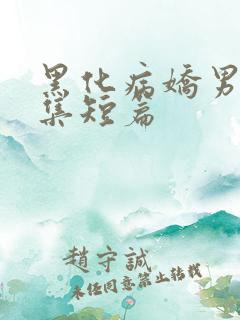 黑化病嬌男
集短篇
趙守誠
未经同意禁止转载